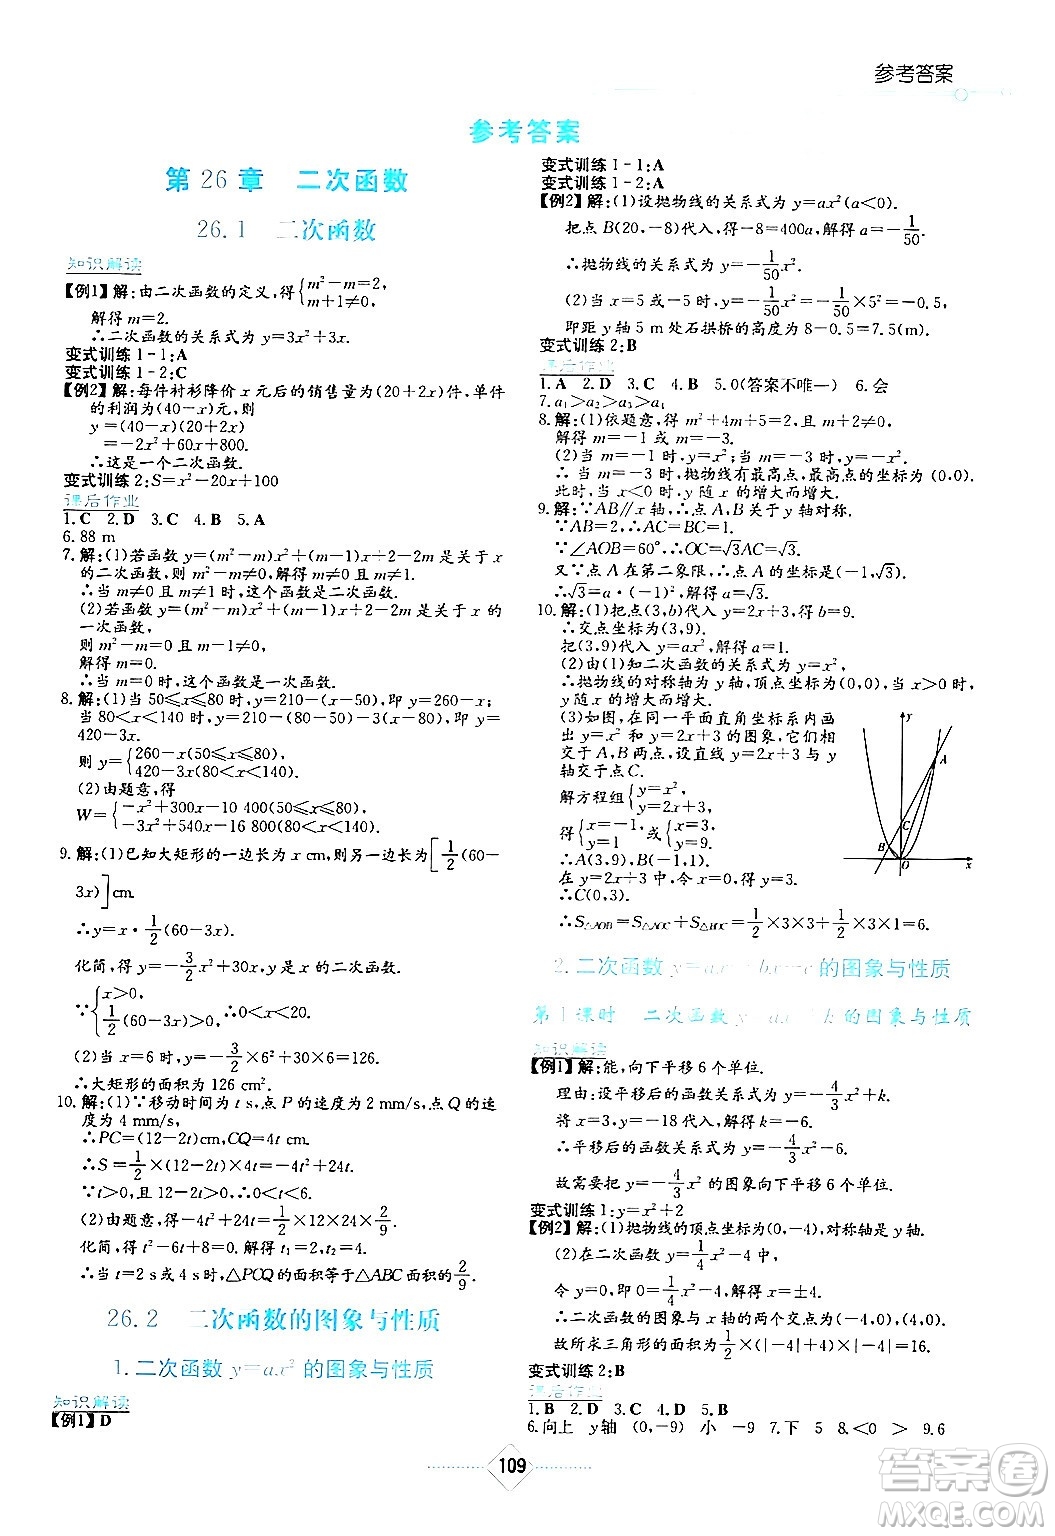 参考答案
参考答案
第 26 章　二次函数
26.1　二次函数
知识解读
【例1】解:由二次函数的定义,得{m²-m=2, m+1≠0,
解得 m=2.
∴二次函数的关系式为 y=3x²+3x.
变式训练 1-1:A
变式训练 1-2:C
【例2】解:每件衬衫降价 x 元后的销售量为(20+2x)件,单件
的利润为(40-x)元,则
y=(40-x)(20+2x)
=-2x²+60x+800.
∴这是一个二次函数.
变式训练 2:S=x²-20x+100
课后作业
1.C　2.D　3.C　4.B　5.A
6.88 m
7.解:(1)若函数 y=(m²-m)x²+(m-1)x+2-2m 是关于 x
的二次函数,则 m²-m≠0,解得 m≠0 且 m≠1.
∴当 m≠0 且 m≠1 时,这个函数是二次函数.
(2)若函数 y=(m²-m)x²+(m-1)x+2-2m 是关于 x 的
一次函数,
则 m²-m=0 且 m-1≠0.
解得 m=0.
∴当 m=0 时,这个函数是一次函数.
8.解:(1)当 50≤x≤80 时,y=210-(x-50),即 y=260-x;
当 80<x<140 时,y=210-(80-50)-3(x-80),即 y=
420-3x.
则 y={260-x(50≤x≤80), 420-3x(80<x<140).
(2)由题意,得
W={-x²+300x-10 400(50≤x≤80), -3x²+540x-16 800(80<x<140).
9.解:(1)已知大矩形的一边长为 x cm,则另一边长为[1/2(60-
3x)]cm.
∴y=x·1/2(60-3x).
化简,得 y=-3/2x²+30x,
∵{x>0, 1/2(60-3x)>0, ∴0<x<20.
(2)当 x=6 时,y=-3/2×6²+30×6=126.
∴大矩形的面积为 126 cm².
10.解:(1)∵移动时间为 t s,点 P 的速度为 2 mm/s,点 Q 的速
度为 4 mm/s,
∴PC=(12-2t)cm,CQ=4t cm.
∴S=1/2×(12-2t)×4t=-4t²+24t.
∵t>0,且 12-2t>0,∴0<t<6.
(2)由题意,得-4t²+24t=1/2×12×24×2/9.
化简,得 t²-6t+8=0.解得 t₁=2,t₂=4.
∴当 t=2 s或 4 s时,△PCQ 的面积等于△ABC 面积的2/9.
26.2　二次函数的图象与性质
1.二次函数 y=ax² 的图象与性质
知识解读
【例1】D
变式训练 1-1:A
变式训练 1-2:A
【例2】解:(1)设抛物线的关系式为 y=ax²(a<0).
把点 B(20,-8)代入,得-8=400a,解得 a=-1/50.
∴抛物线的关系式为 y=-1/50x².
(2)当 x=5 或 x=-5 时,y=-1/50x²=-1/50×5²=-0.5,
即距 y轴 5 m 处石拱桥的高度为 8-0.5=7.5(m).
变式训练 2:B
课后作业
1.A　2.D　3.C　4.B　5.0(答案不唯一)　6.会
7.a₁>a₂>a₃>a₄
8.解:(1)依题意,得 m²+4m+5=2,且 m+2≠0,
解得 m=-1 或 m=-3.
(2)当 m=-3 时,抛物线有最高点,最高点的坐标为(0,0).
此时,当 x<0 时,y 随 x 的增大而增大.
9.解:∵AB∥x 轴,∴AC=BC=1/2AB,y 轴为对称轴.
∵∠AOB=60°,∴OC=√3AC=√3.
又∵点 A 在第二象限,∴点 A 的坐标为(-1,√3).
∴√3=a·(-1)²,解得 a=√3.
10.解:(1)把点(3,b)代入 y=2x+3,得 b=9.
∴交点坐标为(3,9).
把(3,9)代入 y=ax²,解得 a=1.
(2)由(1)知二次函数的关系式为 y=x².
∴抛物线的对称轴为 y轴,顶点坐标为(0,0),当 x>0 时,
y 随 x 的增大而增大.
(3)如图,在同一平面直角坐标系内画
出 y=x² 和 y=2x+3 的图象,它们相
交于 A,B 两点,设直线 y=2x+3 与 y
轴交于点 C.
解方程组{y=x², y=2x+3,
得{x=-1, y=1 或{x=3, y=9.
∴A(3,9),B(-1,1).
在 y=2x+3 中,令 x=0,得 y=3,
∴C(0,3).
∴S△AOB=S△AOC+S△BOC=1/2×3×3+1/2×3×1=6.
y
A
C
B
O
x
2.二次函数 y=ax²+bx+c 的图象与性质
第 1 课时　二次函数 y=ax²+k 的图象与性质
知识解读
【例1】解:能,向下平移 6 个单位.
理由:设平移后的函数关系式为 y=-4/3x²+k.
将 x=3,y=-18 代入,得 k=-6.
∴平移后的函数关系式为 y=-4/3x²-6.
故需要把 y=-4/3x² 的图象向下平移 6 个单位.
变式训练 1:y=x²+2
【例2】解:(1)抛物线的顶点坐标为(0,-4),对称轴是 y轴.
(2)在二次函数 y=1/4x²-4 中,
令 y=0,即 0=1/4x²-4,解得 x=±4.
∴二次函数图象与 x 轴的两个交点为(-4,0),(4,0).
故所求三角形的面积为1/2×(|-4|+4)×|-4|=16.
变式训练 2:B
课后作业
1.B　2.D　3.C　4.D　5.B
6.向上　y轴　(0,-9)　小　-9　7.下　5　8.<0　>　9.6
109
答案圈
MXQE.COM